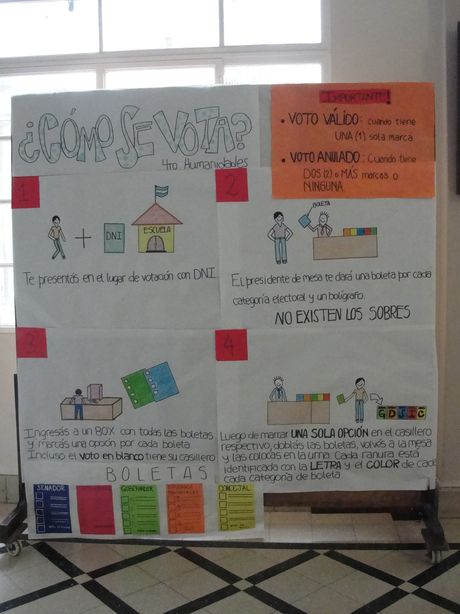 ¿CÓMO SE VOTA?
4to Humanidades
IMPORTANTE!
• VOTO VÁLIDO: cuando tiene
UNA (1) sola marca.
• VOTO ANULADO: Cuando tiene
DOS (2) o MÁS marcas o
NINGUNA
1
DNI
ESCUELA
Te presentás en el lugar de votación con DNI.
2
BOLETA
El presidente de mesa te dará una boleta por cada
categoría electoral y un bolígrafo.
NO EXISTEN LOS SOBRES
3
Ingresás a un BOX con todas las boletas
y marcás una opción por cada boleta
Incluso el voto en blanco tiene su casillero
4
Luego de marcar UNA SOLA OPCIÓN en el casillero
respectivo, doblás las boletas, volvés a la mesa
y las colocas en la urna. Cada ranura está
identificada con la LETRA y el COLOR de cada
categoría de boleta.
BOLETAS
SENADOR
GOBERNADOR
CONCEJAL